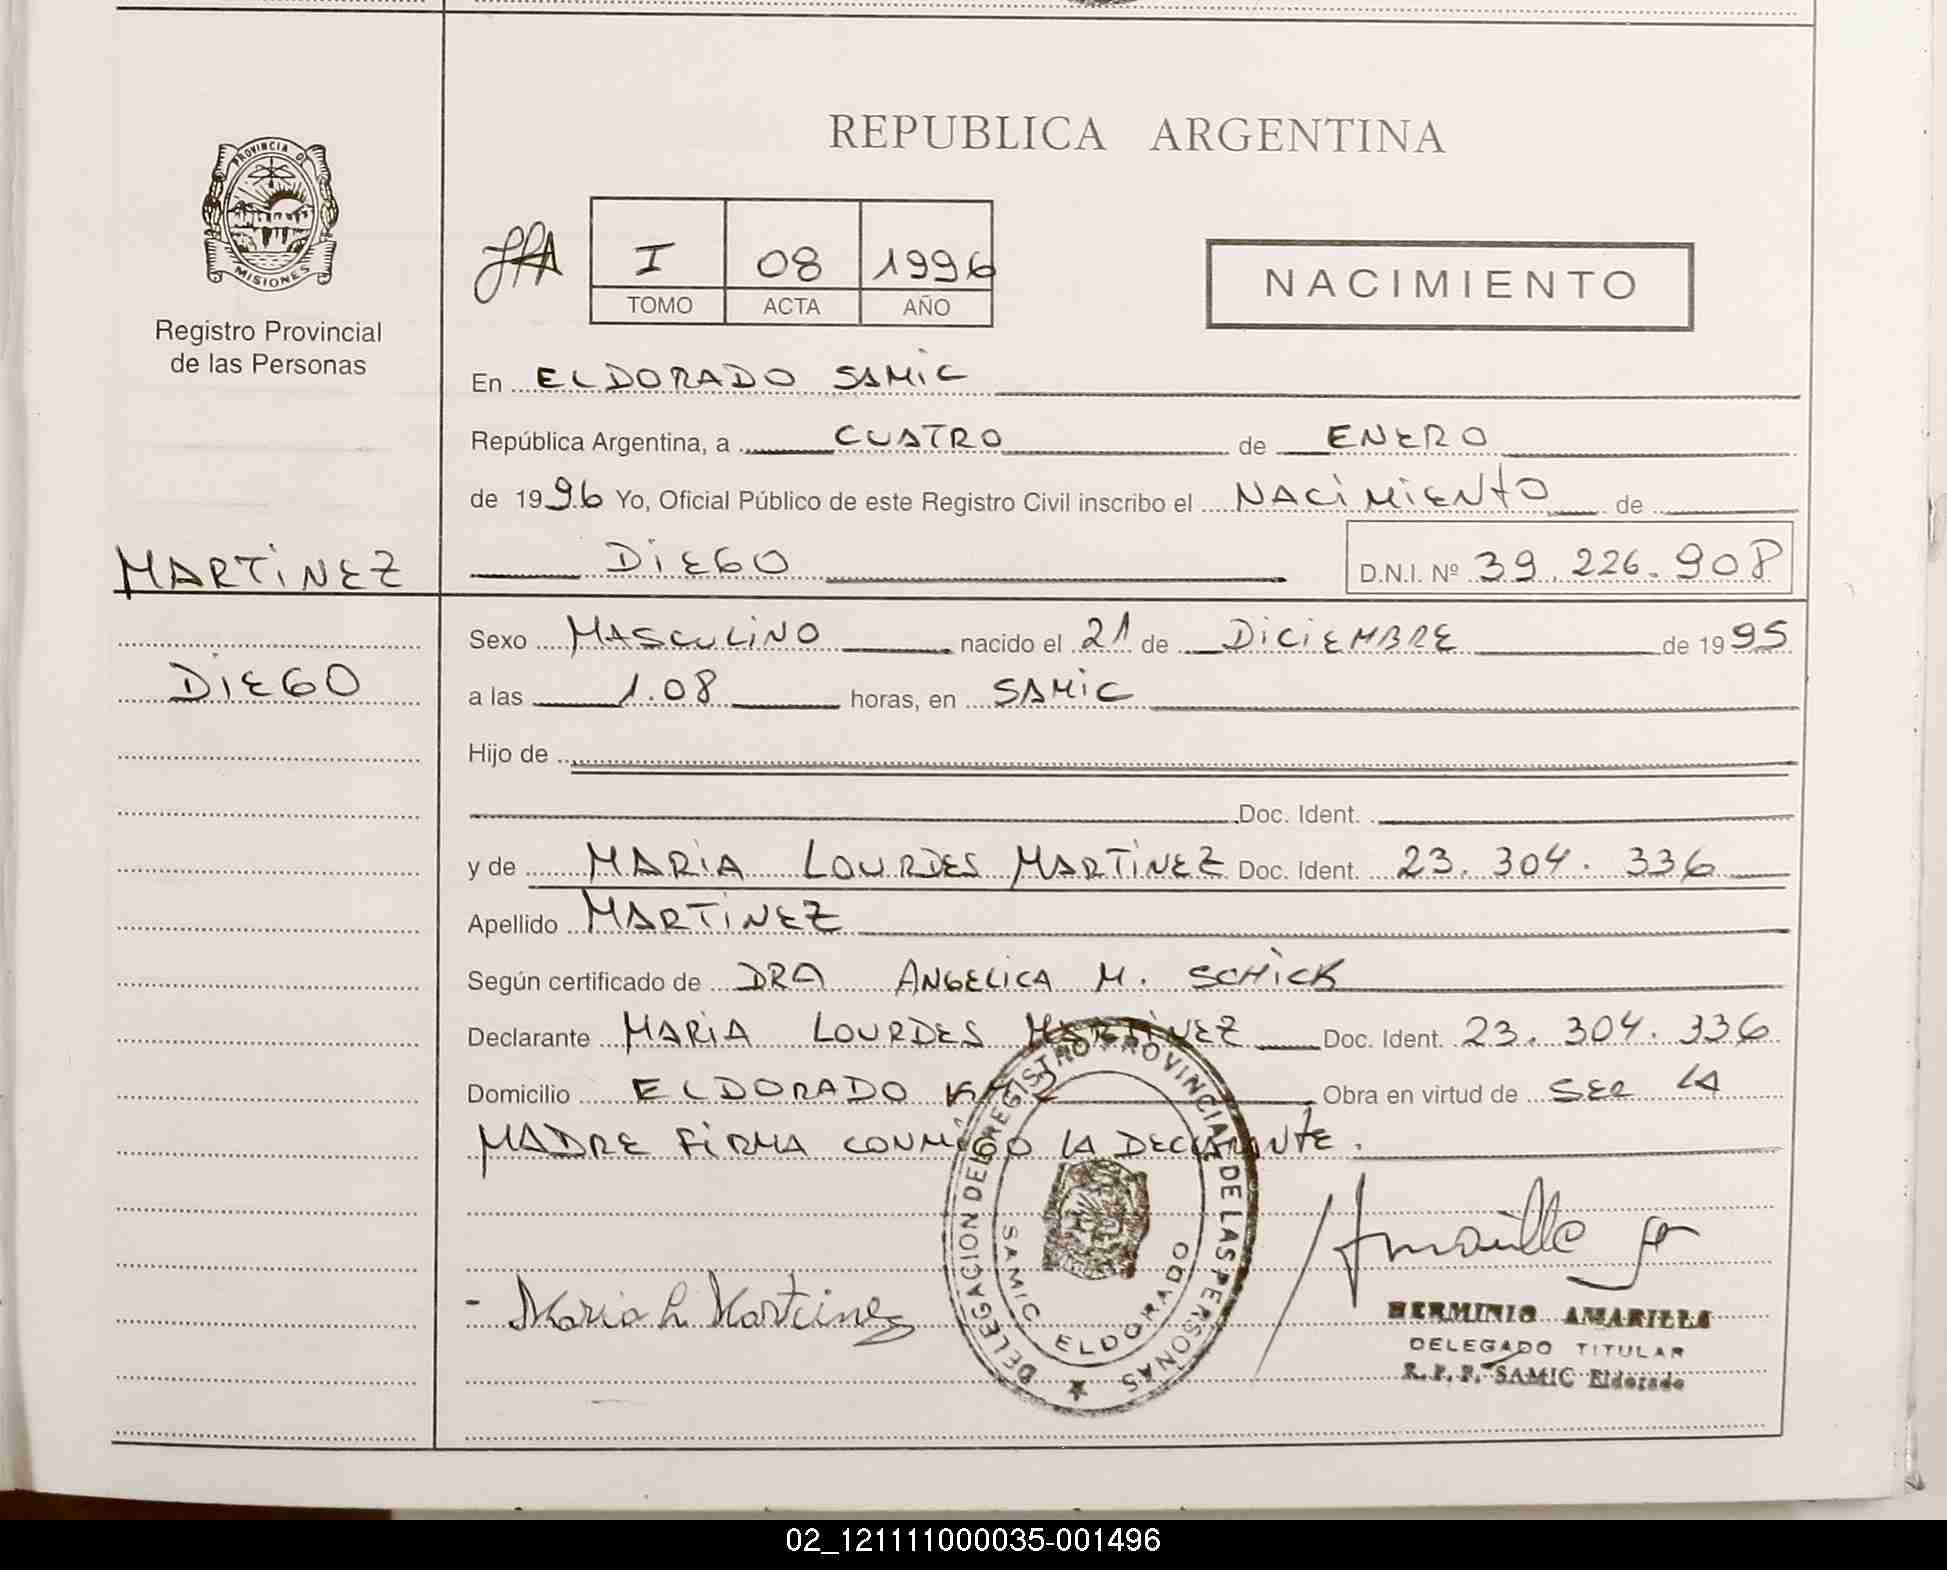 REPUBLICA ARGENTINA
PROVINCIA DE
MISIONES
Registro Provincial
de las Personas
I 08 1996
TOMO ACTA AÑO
NACIMIENTO
En ELDORADO SAMIC
República Argentina, a CUATRO de ENERO
de 1996 Yo, Oficial Público de este Registro Civil inscribo el NACIMIENTO de
MARTINEZ
DIEGO D.N.I. Nº 39.226.908
DIEGO
Sexo MASCULINO nacido el 21 de DICIEMBRE de 1995
a las 1.08 horas, en SAMIC
Hijo de
Doc. Ident.
y de MARIA LOURDES MARTINEZ Doc. Ident. 23.304.336
Apellido MARTINEZ
Según certificado de DRA ANGELICA M. SCHICK
Declarante MARIA LOURDES MARTINEZ Doc. Ident. 23.304.336
Domicilio ELDORADO Obra en virtud de SER LA
MADRE FIRMA CONMIGO LA DECLARANTE.
DELEGACION DEL REGISTRO PROVINCIAL DE LAS PERSONAS
SAMIC ELDORADO
- Maria L Martinez
HERMINIO AMARILLA
DELEGADO TITULAR
R.P.P. SAMIC Eldorado
02_121111000035-001496